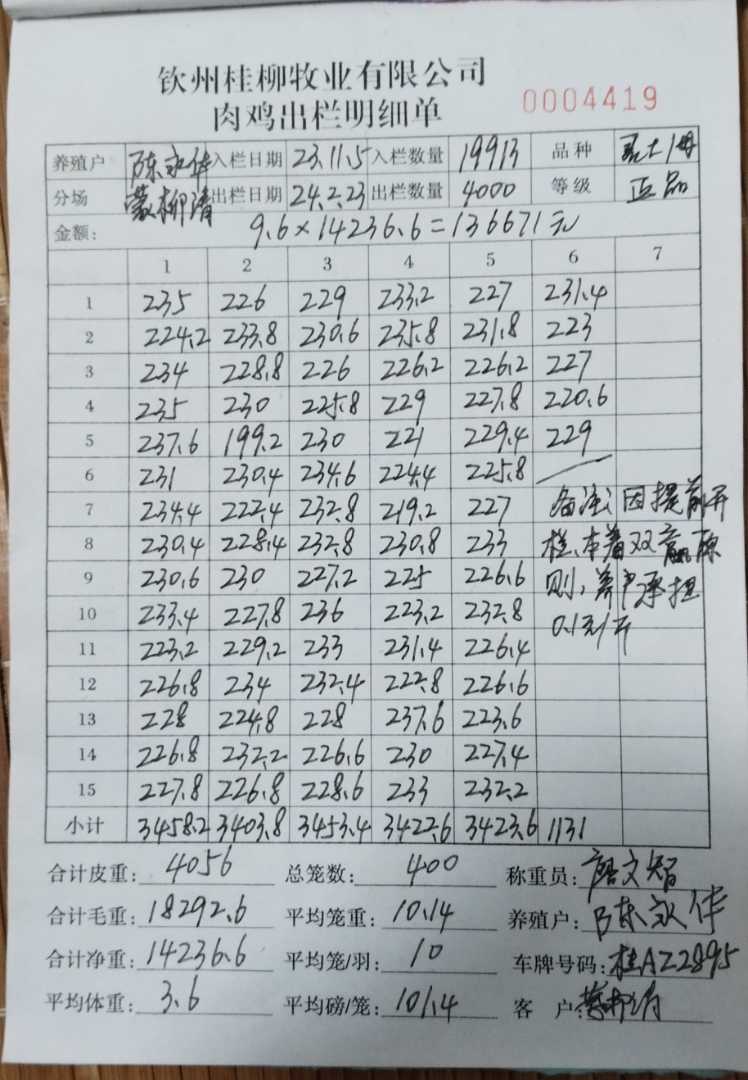 钦州桂柳牧业有限公司
肉鸡出栏明细单
0004419
养殖户 陈永华 入栏日期 23.11.5 入栏数量 19913 品种
分场 蒙柳清 出栏日期 24.2.23 出栏数量 4000 等级 正品
金额: 9.6×14236.6=136671元
1 2 3 4 5 6 7
1 235 226 229 233.2 227 231.4
2 224.2 233.8 230.6 235.8 231.8 223
3 234 228.8 226 226.2 226.2 227
4 235 230 225.8 229 227.8 220.6
5 237.6 199.2 230 221 229.4 229
6 231 230.4 234.6 224.4 225.8
7 234.4 222.4 232.8 219.2 227 备注:因提前开
8 230.4 228.4 232.8 230.8 233 栏、本着双赢原
9 230.6 230 227.2 225 226.6 则,养户承担
10 233.4 227.8 236 223.2 232.8 0.1元/斤
11 223.2 229.2 233 231.4 226.4
12 226.8 234 232.4 222.8 226.6
13 228 224.8 228 237.6 223.6
14 226.8 232.2 226.6 230 227.4
15 227.8 226.8 228.6 233 232.2
小计 3458.2 3403.8 3453.4 3422.6 3423.6 1131
合计皮重: 4056 总笼数: 400 称重员: 唐文智
合计毛重: 18292.6 平均笼重: 10.14 养殖户: 陈永华
合计净重: 14236.6 平均笼/羽: 10 车牌号码: 桂AZ2895
平均体重: 3.6 平均磅/笼: 101.4 客 户: 蒙柳清